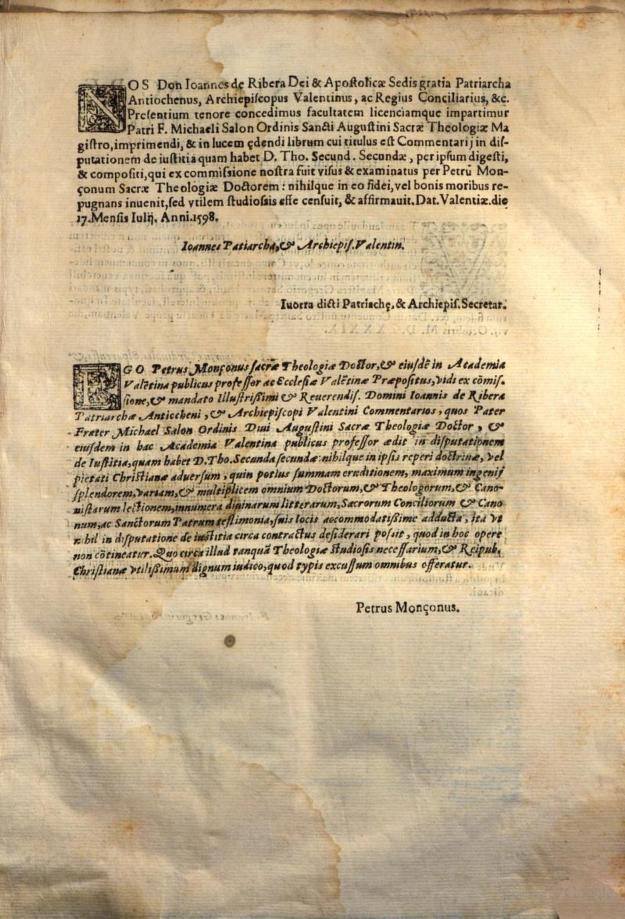 NOS Don Ioannes de Ribera Dei & Apostolicæ Sedis gratia Patriarcha
Antiochenus, Archiepiscopus Valentinus, ac Regius Conciliarius, &c.
Presentium tenore concedimus facultatem licenciamque impartimur
Patri F. Michaeli Salon Ordinis Sancti Augustini Sacræ Theologiæ Ma
gistro, imprimendi, & in lucem ędendi librum cui titulus est Commentarij in dis-
putationem de iustitia quam habet D. Tho. Secund. Secundæ, per ipsum digesti,
& compositi, qui ex commissione nostra fuit visus & examinatus per Petrū Mon-
çonum Sacræ Theologiæ Doctorem: nihilque in eo fidei, vel bonis moribus re-
pugnans inuenit, sed vtilem studiosis esse censuit, & affirmauit. Dat. Valentiæ. die
17. Mensis Iulij. Anni. 1598.
Ioannes Patiarcha, & Archiepis. Valentin.
Iuorra dicti Patriachę. & Archiepis. Secretar.
EGO Petrus Monçonus sacræ Theologiæ Doctor, & eiusdē in Academia
Valētina publicus professor ac Ecclesiæ Valētinæ Præpositus, vidi ex cōmis-
sione, & mandato Illustrissimi & Reuerendiss. Domini Ioannis de Ribera
Patriarchæ Antiocheni, & Archiepiscopi Valentini Commentarios, quos Pater
Frater Michael Salon Ordinis Diui Augustini Sacræ Theologiæ Doctor, &
eiusdem in hac Academia Valentina publicus professor ædit in disputationem
de Iustitia, quam habet D. Tho. Secunda secundæ: nihilque in ipsis reperi doctrinæ, vel
pietati Christianæ aduersum, quin potius summam eruditionem, maximum ingenij
splendorem, variam, & multiplicem omnium Doctorum, & Theologorum, & Cano-
nistarum lectionem, innumera diuinarum litterarum, Sacrorum Conciliorum & Cano-
num, ac Sanctorum Patrum testimonia, suis locis accommodatissime adducta, ita vt
nihil in disputatione de iustitia circa contractus desiderari possit, quod in hoc opere
non cōtineatur. Quo circa illud tanquā Theologiæ studiosis necessarium, & Reipub.
Christianæ vtilissimum dignum iudico, quod typis excussum omnibus offeratur.
Petrus Monçonus.